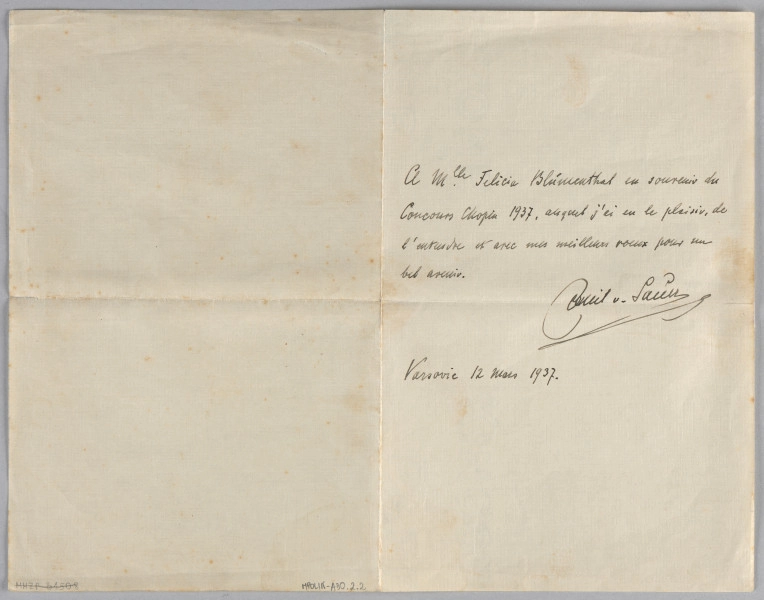 A Mlle Felicia Blumenthal en souvenir du
Concours Chopin 1937, auquel j'ai eu le plaisir, de
l'entendre et avec mes meilleurs voeux pour un
bel avenir.
Emil v. Sauer
Varsovie 12 mars 1937.